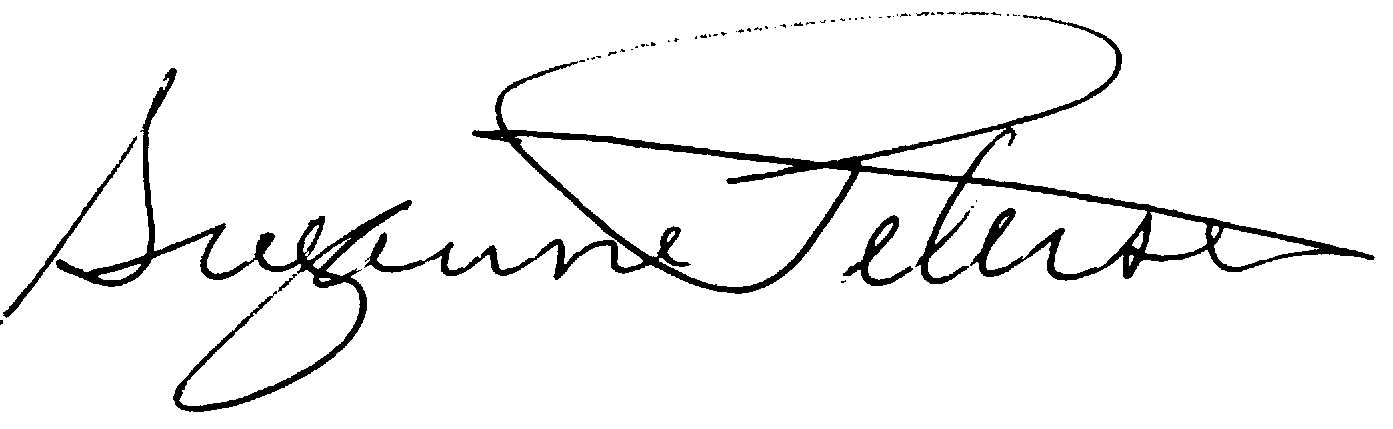 Suzanne Peterse